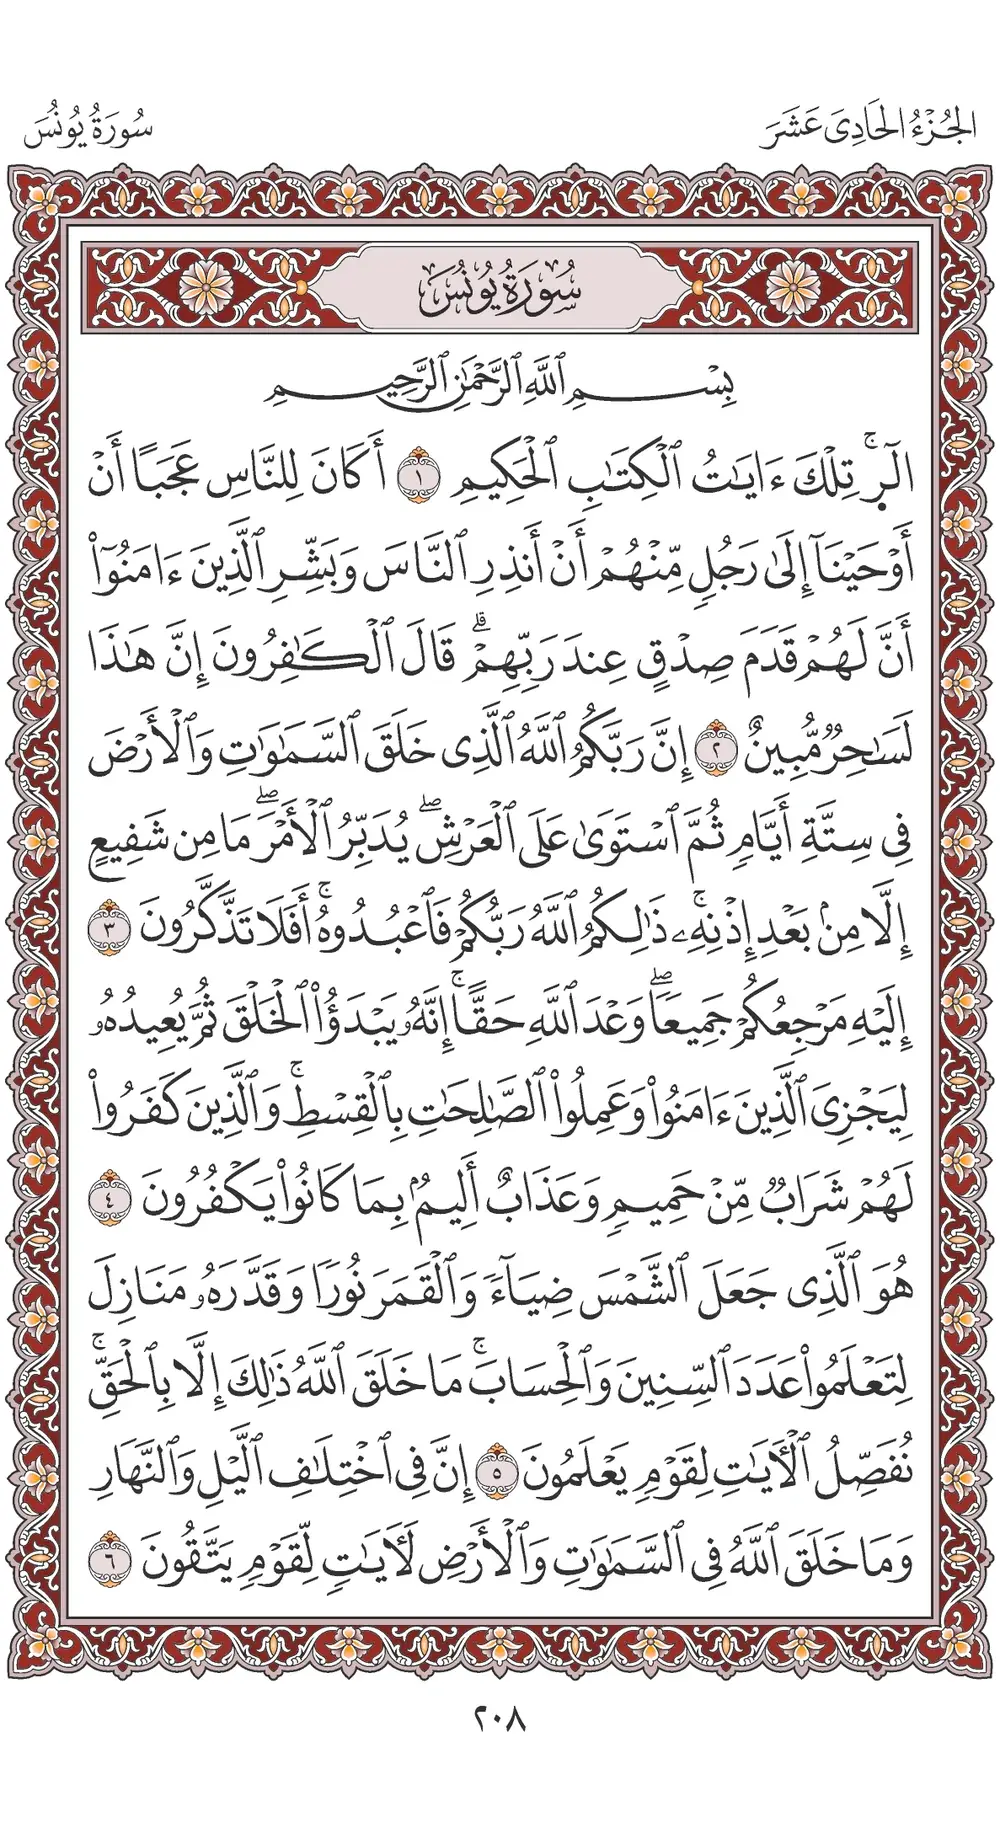 الجُزْءُ الحَادِي عَشَرَ
سُورَةُ يُونُسَ
سُورَةُ يُونُسَ
بِسْمِ ٱللَّهِ ٱلرَّحْمَٰنِ ٱلرَّحِيمِ
الٓرۚ تِلْكَ ءَايَٰتُ ٱلْكِتَٰبِ ٱلْحَكِيمِ ١ أَكَانَ لِلنَّاسِ عَجَبًا أَنْ
أَوْحَيْنَآ إِلَىٰ رَجُلٍ مِّنْهُمْ أَنْ أَنذِرِ ٱلنَّاسَ وَبَشِّرِ ٱلَّذِينَ ءَامَنُوٓا۟
أَنَّ لَهُمْ قَدَمَ صِدْقٍ عِندَ رَبِّهِمْۗ قَالَ ٱلْكَٰفِرُونَ إِنَّ هَٰذَا
لَسَٰحِرٌ مُّبِينٌ ٢ إِنَّ رَبَّكُمُ ٱللَّهُ ٱلَّذِى خَلَقَ ٱلسَّمَٰوَٰتِ وَٱلْأَرْضَ
فِى سِتَّةِ أَيَّامٍ ثُمَّ ٱسْتَوَىٰ عَلَى ٱلْعَرْشِۖ يُدَبِّرُ ٱلْأَمْرَۖ مَا مِن شَفِيعٍ
إِلَّا مِنۢ بَعْدِ إِذْنِهِۦۚ ذَٰلِكُمُ ٱللَّهُ رَبُّكُمْ فَٱعْبُدُوهُۚ أَفَلَا تَذَّكَّرُونَ ٣
إِلَيْهِ مَرْجِعُكُمْ جَمِيعًاۖ وَعْدَ ٱللَّهِ حَقًّاۚ إِنَّهُۥ يَبْدَؤُا۟ ٱلْخَلْقَ ثُمَّ يُعِيدُهُۥ
لِيَجْزِىَ ٱلَّذِينَ ءَامَنُوا۟ وَعَمِلُوا۟ ٱلصَّٰلِحَٰتِ بِٱلْقِسْطِۚ وَٱلَّذِينَ كَفَرُوا۟
لَهُمْ شَرَابٌ مِّنْ حَمِيمٍ وَعَذَابٌ أَلِيمٌۢ بِمَا كَانُوا۟ يَكْفُرُونَ ٤
هُوَ ٱلَّذِى جَعَلَ ٱلشَّمْسَ ضِيَآءً وَٱلْقَمَرَ نُورًا وَقَدَّرَهُۥ مَنَازِلَ
لِتَعْلَمُوا۟ عَدَدَ ٱلسِّنِينَ وَٱلْحِسَابَۚ مَا خَلَقَ ٱللَّهُ ذَٰلِكَ إِلَّا بِٱلْحَقِّۚ
نُفَصِّلُ ٱلْأَيَٰتِ لِقَوْمٍ يَعْلَمُونَ ٥ إِنَّ فِى ٱخْتِلَٰفِ ٱلَّيْلِ وَٱلنَّهَارِ
وَمَا خَلَقَ ٱللَّهُ فِى ٱلسَّمَٰوَٰتِ وَٱلْأَرْضِ لَأَيَٰتٍ لِّقَوْمٍ يَتَّقُونَ ٦
٢٠٨